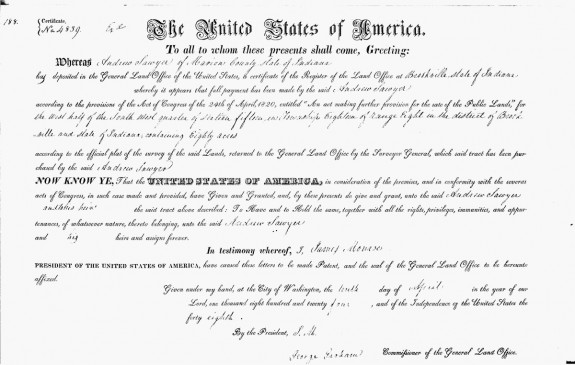 188.
Certificate,
No. 4839.
The United States of America.
To all to whom these presents shall come, Greeting:
Whereas Andrew Sawyer of Marion County State of Indiana
has deposited in the General Land Office of the United States, a certificate of the Register of the Land Office at Brookville, State of Indiana
whereby it appears that full payment has been made by the said Andrew Sawyer
according to the provisions of the Act of Congress of the 24th of April, 1820, entitled "An act making further provision for the sale of the Public Lands," for
the West half of the South West quarter of Section fifteen, in Township Eighteen of Range Eight in the district of Brook
ville and State of Indiana, containing Eighty acres
according to the official plat of the survey of the said Lands, returned to the General Land Office by the Surveyor General, which said tract has been pur-
chased by the said Andrew Sawyer
NOW KNOW YE, That the UNITED STATES OF AMERICA, in consideration of the premises, and in conformity with the several
acts of Congress, in such case made and provided, have Given and Granted, and, by these presents do give and grant, unto the said Andrew Sawyer
the said tract above described: To Have and to Hold the same, together with all the rights, privileges, immunities, and appur-
tenances, of whatsoever nature, thereto belonging, unto the said Andrew Sawyer
and his heirs and assigns forever.
In testimony whereof, I, James Monroe
PRESIDENT OF THE UNITED STATES OF AMERICA, have caused these letters to be made Patent, and the seal of the General Land Office to be hereunto
affixed.
Given under my hand, at the City of Washington, the tenth day of April in the year of our
Lord, one thousand eight hundred and twenty four, and of the Independence of the United States the
forty eighth.
By the President, J. M.
George Graham Commissioner of the General Land Office.